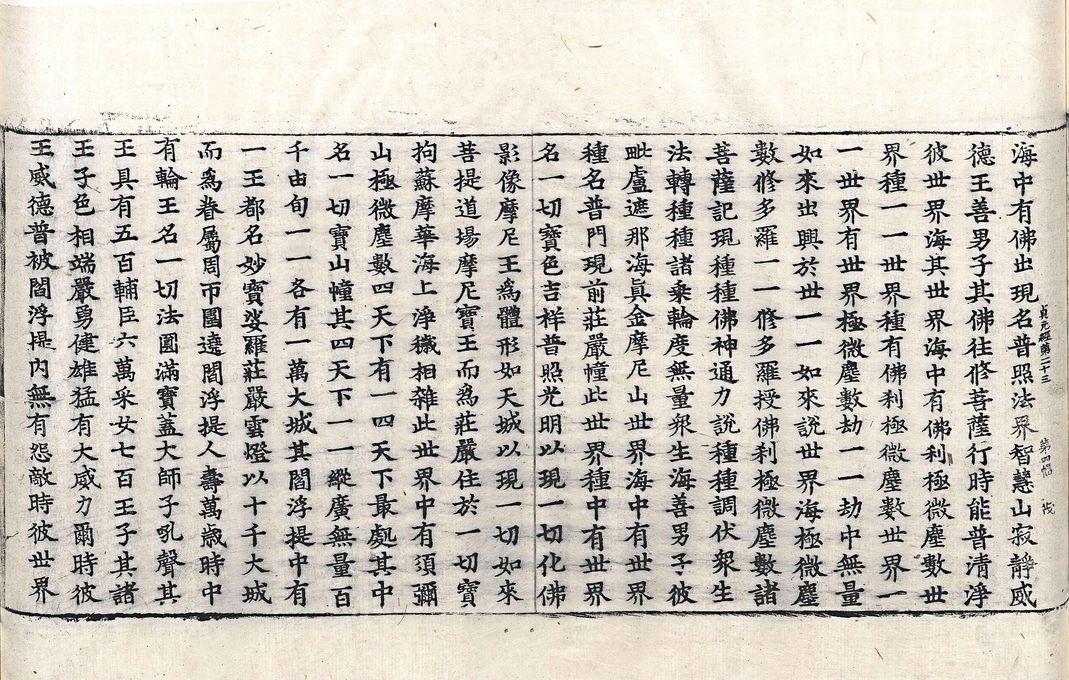 貞元經第二十三 第四幅 伐
海中有佛出現名普照法界智慧山寂靜威
德王善男子其佛往修菩薩行時能普清淨
彼世界海其世界海中有佛刹極微塵數世
界種一一世界種有佛刹極微塵數世界一
一世界有世界極微塵數劫一一劫中無量
如來出興於世一一如來說世界海極微塵
數修多羅一一修多羅授佛刹極微塵數諸
菩薩記現種種佛神通力說種種調伏眾生
法轉種種諸乘輪度無量眾生海善男子彼
毗盧遮那海眞金摩尼山世界海中有世界
種名普門現前莊嚴幢此世界種中有世界
名一切寶色吉祥普照光明以現一切化佛
影像摩尼王為體形如天城以現一切如來
菩提道場摩尼寶王而為莊嚴住於一切寶
拘蘇摩華海上淨穢相雜此世界中有須彌
山極微塵數四天下有一四天下最處其中
名一切寶山幢其四天下一一縱廣無量百
千由旬一一各有一萬大城其閻浮提中有
一王都名妙寶娑羅莊嚴雲燈以十千大城
而為眷屬周帀圍遶閻浮提人壽萬歲時中
有輪王名一切法圓滿寶蓋大師子吼聲其
王具有五百輔臣六萬采女七百王子其諸
王子色相端嚴勇健雄猛有大威力爾時彼
王威德普被閻浮堤內無有怨敵時彼世界